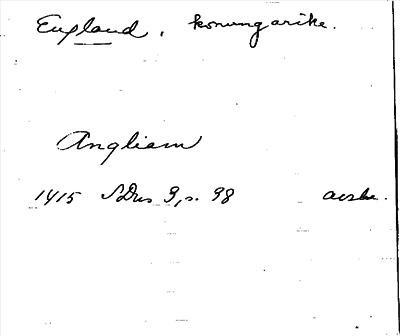 England, konungarike.
Angliam
1415 SDns 3, s. 98 avskr.